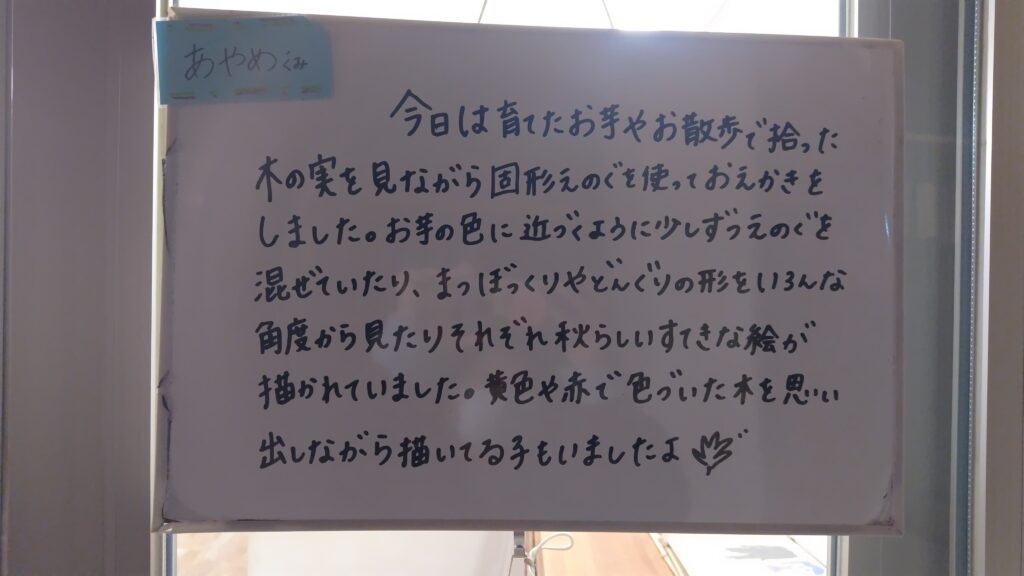 あやめくみ
今日は育てたお芋やお散歩で拾った
木の実を見ながら固形えのぐを使っておえかきを
しました。お芋の色に近づくように少しずつえのぐを
混ぜていたり、まつぼっくりやどんぐりの形をいろんな
角度から見たりそれぞれ秋らしいすてきな絵が
描かれていました。黄色や赤で色づいた木を思い
出しながら描いてる子もいましたよ